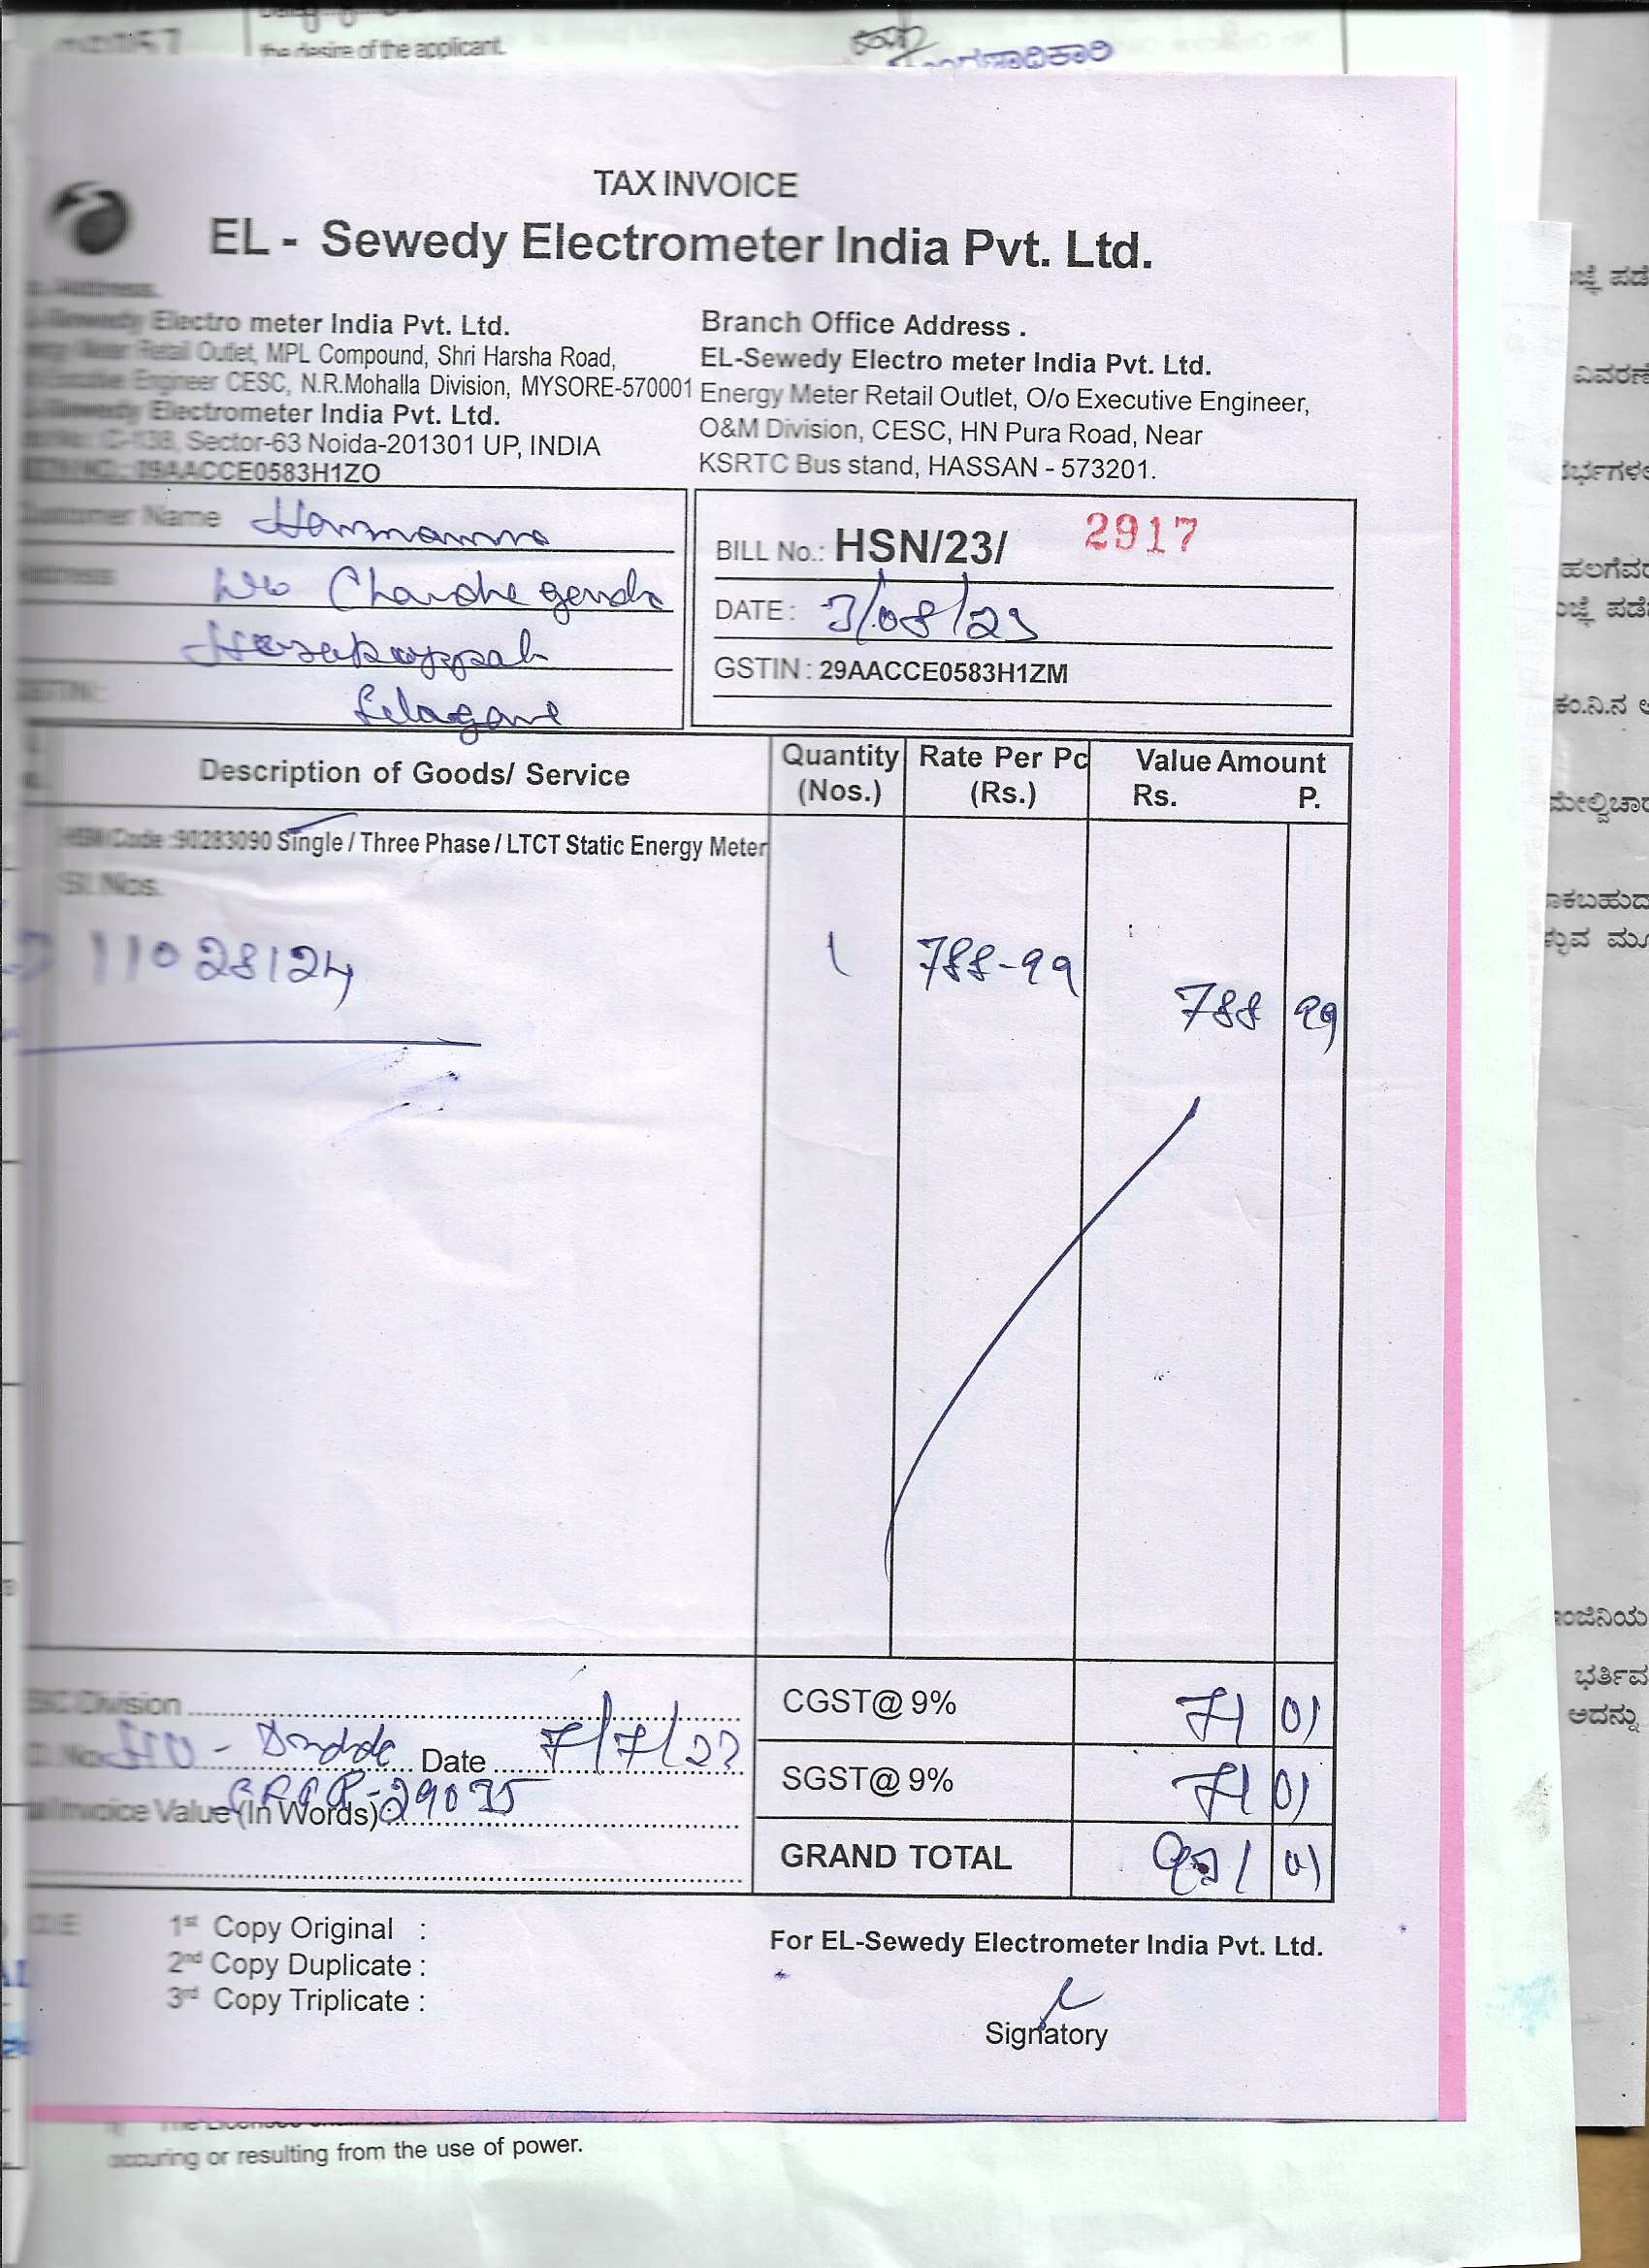 the desire of the applicant.
TAX INVOICE
EL - Sewedy Electrometer India Pvt. Ltd.
Address.
Sewedy Electro meter India Pvt. Ltd.
Meter Retail Outlet, MPL Compound, Shri Harsha Road,
Executive Engineer CESC, N.R.Mohalla Division, MYSORE-570001
Sewedy Electrometer India Pvt. Ltd.
C-138, Sector-63 Noida-201301 UP, INDIA
09AACCE0583H1ZO
Branch Office Address .
EL-Sewedy Electro meter India Pvt. Ltd.
Energy Meter Retail Outlet, O/o Executive Engineer,
O&M Division, CESC, HN Pura Road, Near
KSRTC Bus stand, HASSAN - 573201.
Customer Name
Address
GSTIN:
BILL No.: HSN/23/ 2917
DATE: /08/23
GSTIN : 29AACCE0583H1ZM
Description of Goods/ Service
Quantity (Nos.)
Rate Per Pc (Rs.)
Value Amount Rs. P.
HSN Code :90283090 Single / Three Phase / LTCT Static Energy Meter
Sl. Nos.
11028124 1 788-99 788 99
Division
Date 7/7/23
Invoice Value (In Words)
CGST@ 9% 71 01
SGST@ 9% 71 01
GRAND TOTAL 931 01
1st Copy Original :
2nd Copy Duplicate :
3rd Copy Triplicate :
For EL-Sewedy Electrometer India Pvt. Ltd.
Signatory
occuring or resulting from the use of power.